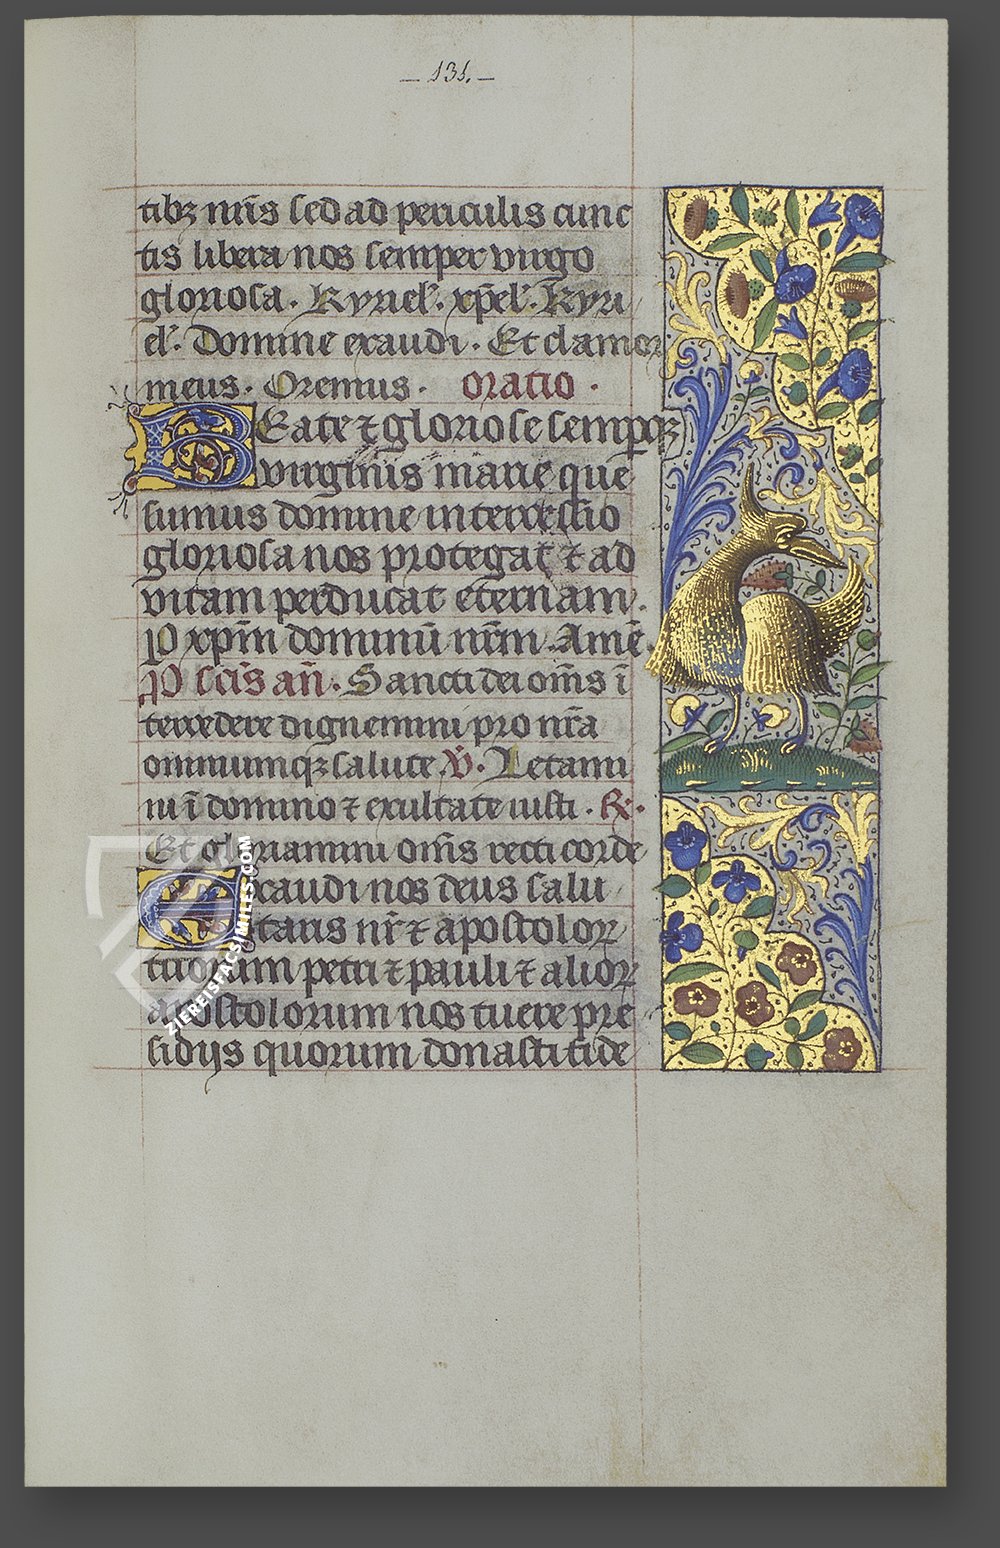 — 131. —
tibꝫ nr̄is sed ad periculis cunc
tis libera nos semper virgo
gloriosa. Kyriel'. xp̄el'. Kyri
el'. Domine exaudi. Et clamor
meus. Oremus. oratio.
Beate ⁊ gloriose semperqꝫ
virginis marie que
sumus domine intercessio
gloriosa nos protegat ⁊ ad
vitam perducat eternam.
P xp̄m dominū nr̄m. Amē.
P scīs an̄. Sancti dei om̄s ī
tercedere dignemini pro nr̄a
omniumqꝫ salute. ℣. Letami
ni ī domino ⁊ exultate iusti. ℟.
Et gloriamini om̄s recti corde
Exaudi nos deus salu
taris nr̄ ⁊ apostoloꝝ
tuorum petri ⁊ pauli ⁊ alioꝝ
apostolorum nos tuere pre
sidiis quorum donasti tide
ZIEREISFACSIMILES.COM